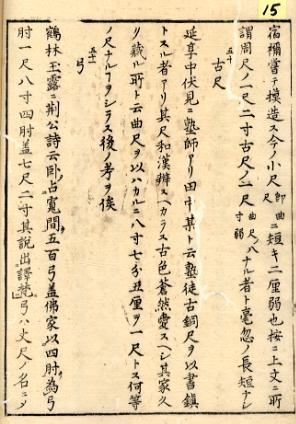 15
宿禰嘗テ模造ス今ノ小尺即曲尺ニ短キ二厘弱也按ニ上文ニ所
謂周尺ノ一尺二寸古尺ノ一尺曲尺ノ八寸弱ナル者ト毫忽ノ長短ナシ
五十
古尺
延享中伏見ニ塾師アリ田中某ト云塾徒古銅尺ヲ以書鎮
トスル者アリ其尺和漢辨スヘカラス古色蒼然愛スヘシ其家久
ク蔵ル所ト云曲尺ヲ以ハカルニ八寸七分五厘ヲ一尺トス何等
ノ尺ナルヿヲシラス後ノ考ヲ俟
五十一
弓
鶴林玉露ニ荊公詩云卧占寛閒五百弓盖佛家以四肘為弓
肘一尺八寸四肘盖七尺二寸其説出譯梵弓ハ丈尺ノ名ニ〆